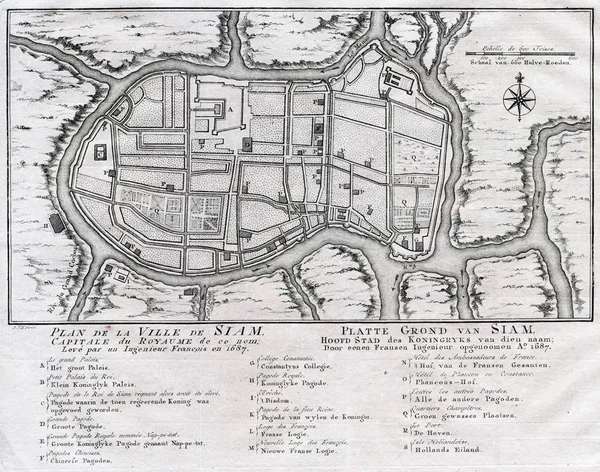 Echelle de 600 Toises.
Schaal van 600 Halve-Roeden.
PLAN DE LA VILLE DE SIAM,
CAPITALE du ROYAUME de ce nom;
Levé par un Ingenieur François en 1687.
PLATTE GROND VAN SIAM,
HOOFD STAD des KONINGRYKS van dien naam;
Door eenen Fransen Ingenieur opgenoomen Aº. 1687.
A Le grand Palais.
Het groot Paleis.
B Petit Palais du Roi.
Klein Koninglyk Paleis.
C Pagode où le Roi de Siam régnant alors avoit été élevé.
Pagode waarin de toen regeerende Koning was
opgevoed geworden.
D Grande Pagode.
Groote Pagode.
E Grande Pagode Royale nommée Nap-pe-tat.
Groote Koninglyke Pagode genaamt Nap-pe-tat.
F Pagodes Chinoises.
Chineese Pagoden.
G College Constantin.
Constantyns Collegie.
H Pagode Royale.
Koninglyke Pagode.
I l'Evêché.
't Bisdom.
K Pagode de la feue Reine.
Pagode van wylen de Konigin.
L Loge des François.
Franse Logie.
M Nouvelle Loge des François.
Nieuwe Franse Logie.
N Hôtel des Ambassadeurs de France.
't Hof van de Fransen Gesanten.
O Hôtel de Phanceon ou Constance.
Phanceons-Hof.
P Toutes les autres Pagodes.
Alle de andere Pagoden.
Q Quartiers Champêtres.
Groen gewassen Plaatsen.
R Le Port.
De Haven.
S Isle Hollandoise.
Hollands Eiland.